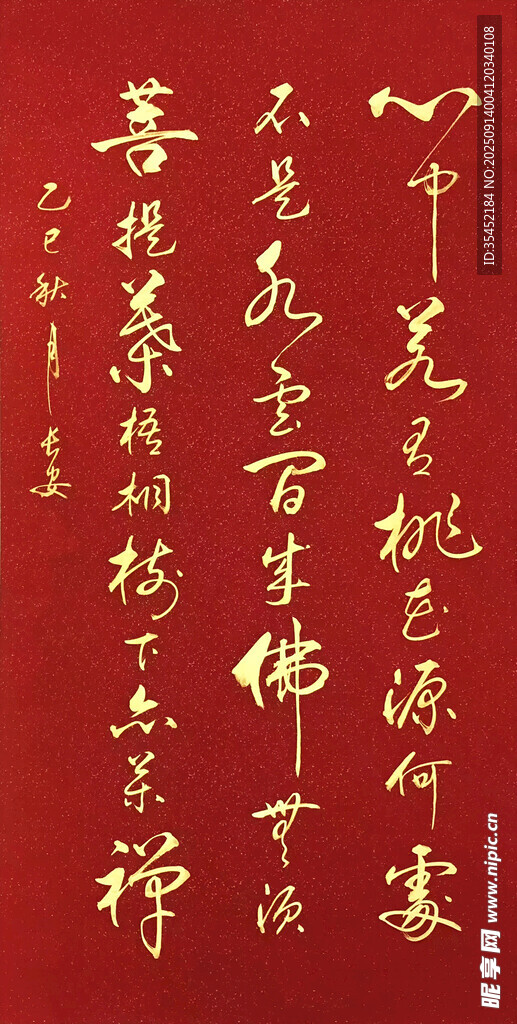 心中若有桃花源何處
不是水雲間成佛無須
菩提葉梧桐樹下亦參禪
乙巳秋月長安
ID:35452184 NO:20250914004120340108
昵享网 www.nipic.cn